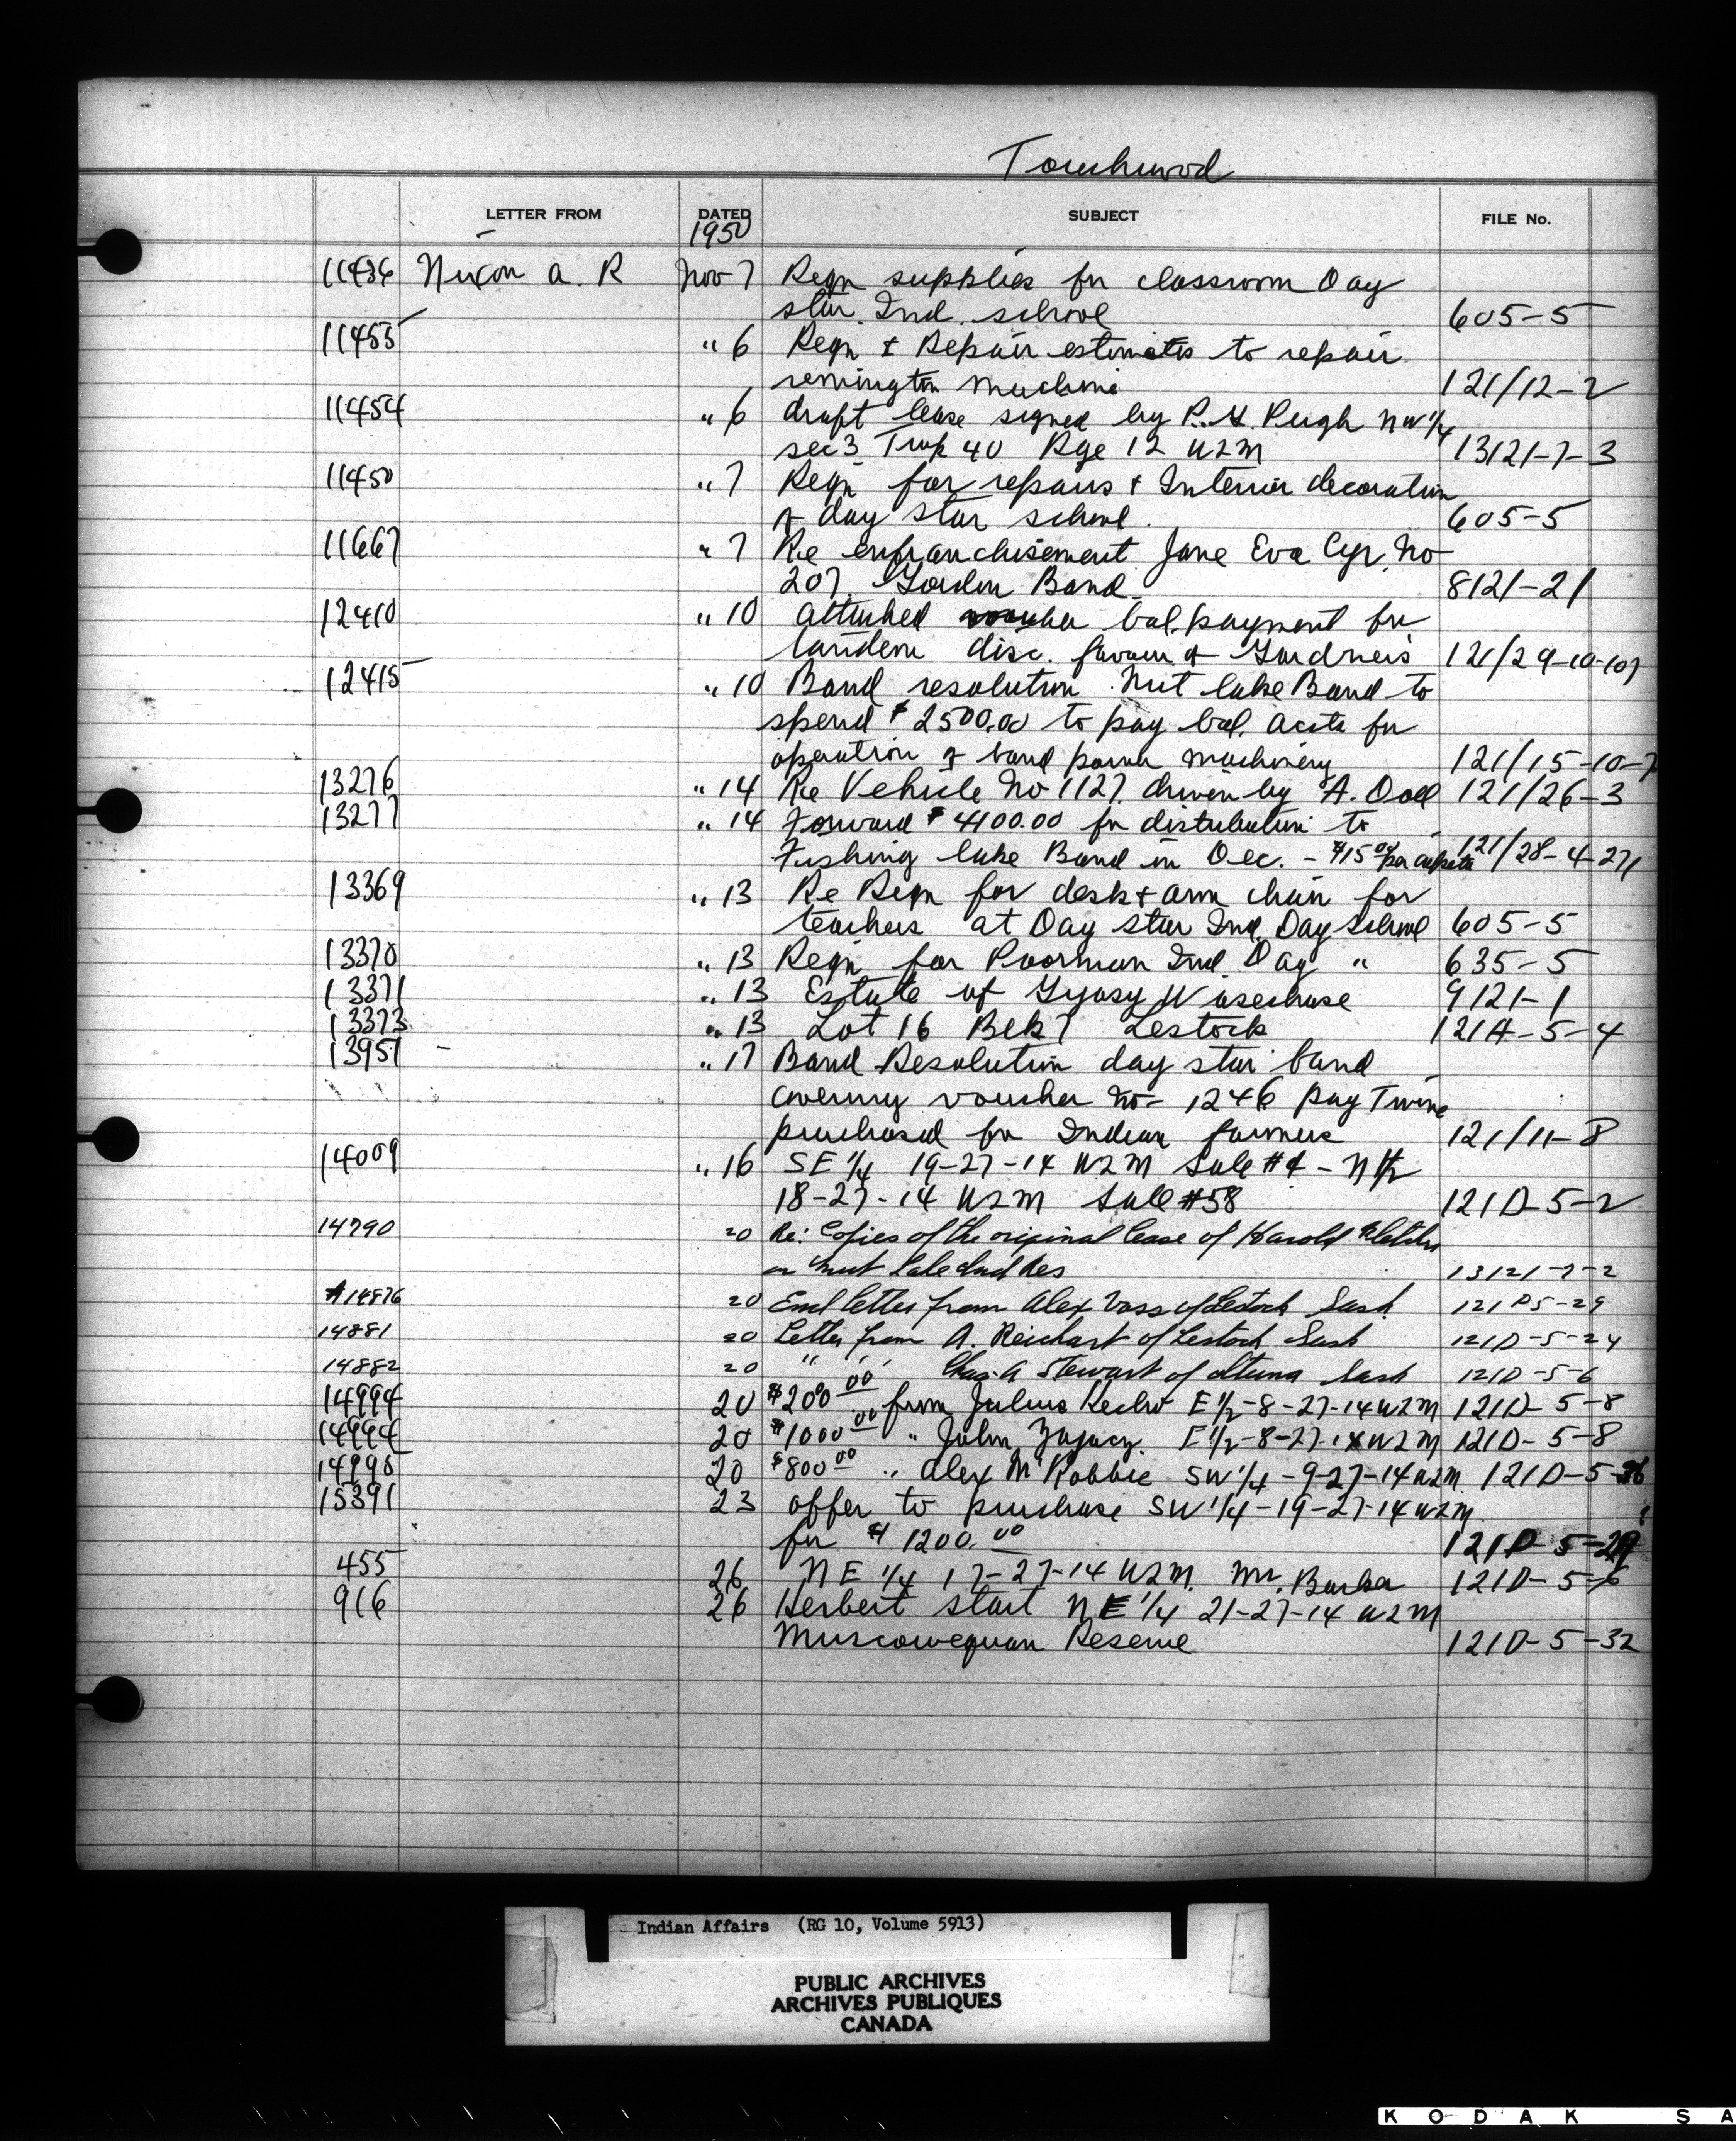 Touchwood
LETTER FROM DATED SUBJECT FILE No.
1950
11436 Nixon A. R Nov 7 Reqn supplies for classroom Day
star. Ind. school 605-5
11455 " 6 Reqn & Repair estimates to repair
remington machine 121/12-2
11454 " 6 draft lease signed by P. H. Pugh NW 1/4
sec 3 Twp 40 Rge 12 W2M 13121-7-3
11450 " 7 Reqn for repairs & Interior decoration
of day star school. 605-5
11667 " 7 Re enfranchisement Jane Eva Cyr. No
207. Gordon Band 8121-21
12410 " 10 attached voucher bal. payment for
tandem disc. favour of Gardners 121/29-10-107
12415 " 10 Band resolution. Nut lake Band to
spend $2500.00 to pay bal. accts for
operation of band farm machinery 121/15-10-7
13276 " 14 Re Vehicle No 1127. driven by A. Doll 121/26-3
13277 " 14 Forward $4100.00 for distribution to
Fishing lake Band in Dec. - $15.00 per capita 121/28-4-271
13369 " 13 Re Reqn for desk & arm chair for
teachers at Day Star Ind. Day School 605-5
13370 " 13 Reqn for Poorman Ind. Day " 635-5
13371 " 13 Estate of 9121-1
13373 " 13 Lot 16 Blk 7 Lestock 121A-5-4
13951 - " 17 Band Resolution day star band
covering voucher No- 1246 pay Twine
purchased for Indian farmers 121/11-8
14009 " 16 SE 1/4 19-27-14 W2M Sale #4 - N 1/2
18-27-14 W2M Sale #58 121D-5-2
14790 20 Re: Copies of the original lease of Harold Fletcher
on Nut Lake Ind Res 13121-7-2
14876 20 Encl letter from Alex Vass of Lestock Sask. 121D5-29
14881 20 Letter from A. Reichart of Lestock Sask 121D-5-24
14882 20 " " Chas. A Stewart of Sask 121D-5-6
14994 20 $200.00 from Julius E 1/2-8-27-14 W2M 121D-5-8
14994 20 $1000.00 " John E 1/2-8-27-14 W2M 121D-5-8
14995 20 $800.00 " Alex McRobbie SW 1/4-9-27-14 W2M 121D-5-
15391 23 offer to purchase SW 1/4-19-27-14 W2M
for $1200.00 121D-5-29
455 26 NE 1/4 17-27-14 W2M. Mr. Barber 121D-5-6
916 26 Herbert start NE 1/4 21-27-14 W2M
Muscowequan Reserve 121D-5-32
Indian Affairs (RG 10, Volume 5913)
PUBLIC ARCHIVES
ARCHIVES PUBLIQUES
CANADA
KODAK SA